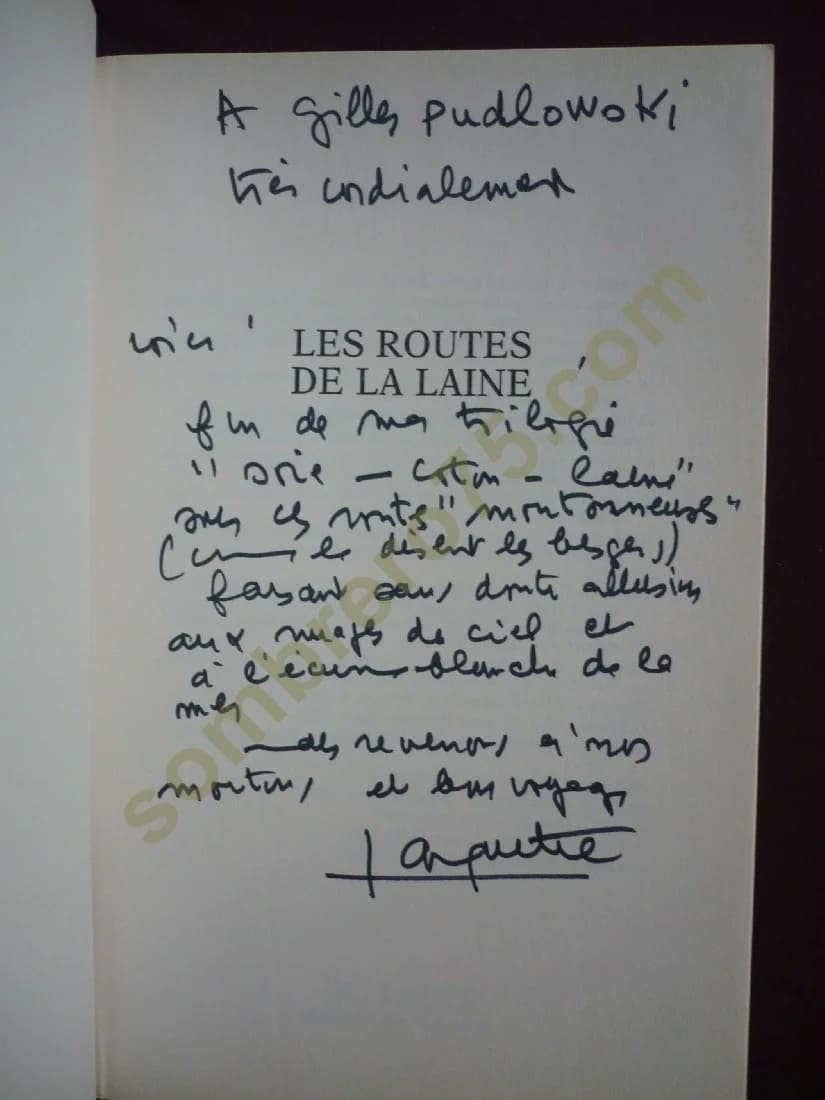 A Gilles Pudlowski
très cordialement
voici
LES ROUTES
DE LA LAINE,
fin de ma trilogie
"soie - coton - laine"
avec ces routes "moutonneuses"
(comme le disent les bergers)
faisant sans doute allusion
aux nuages du ciel et
à l'écume blanche de la
mer
revenons à nos
moutons, et bon voyage
sombrero75.com